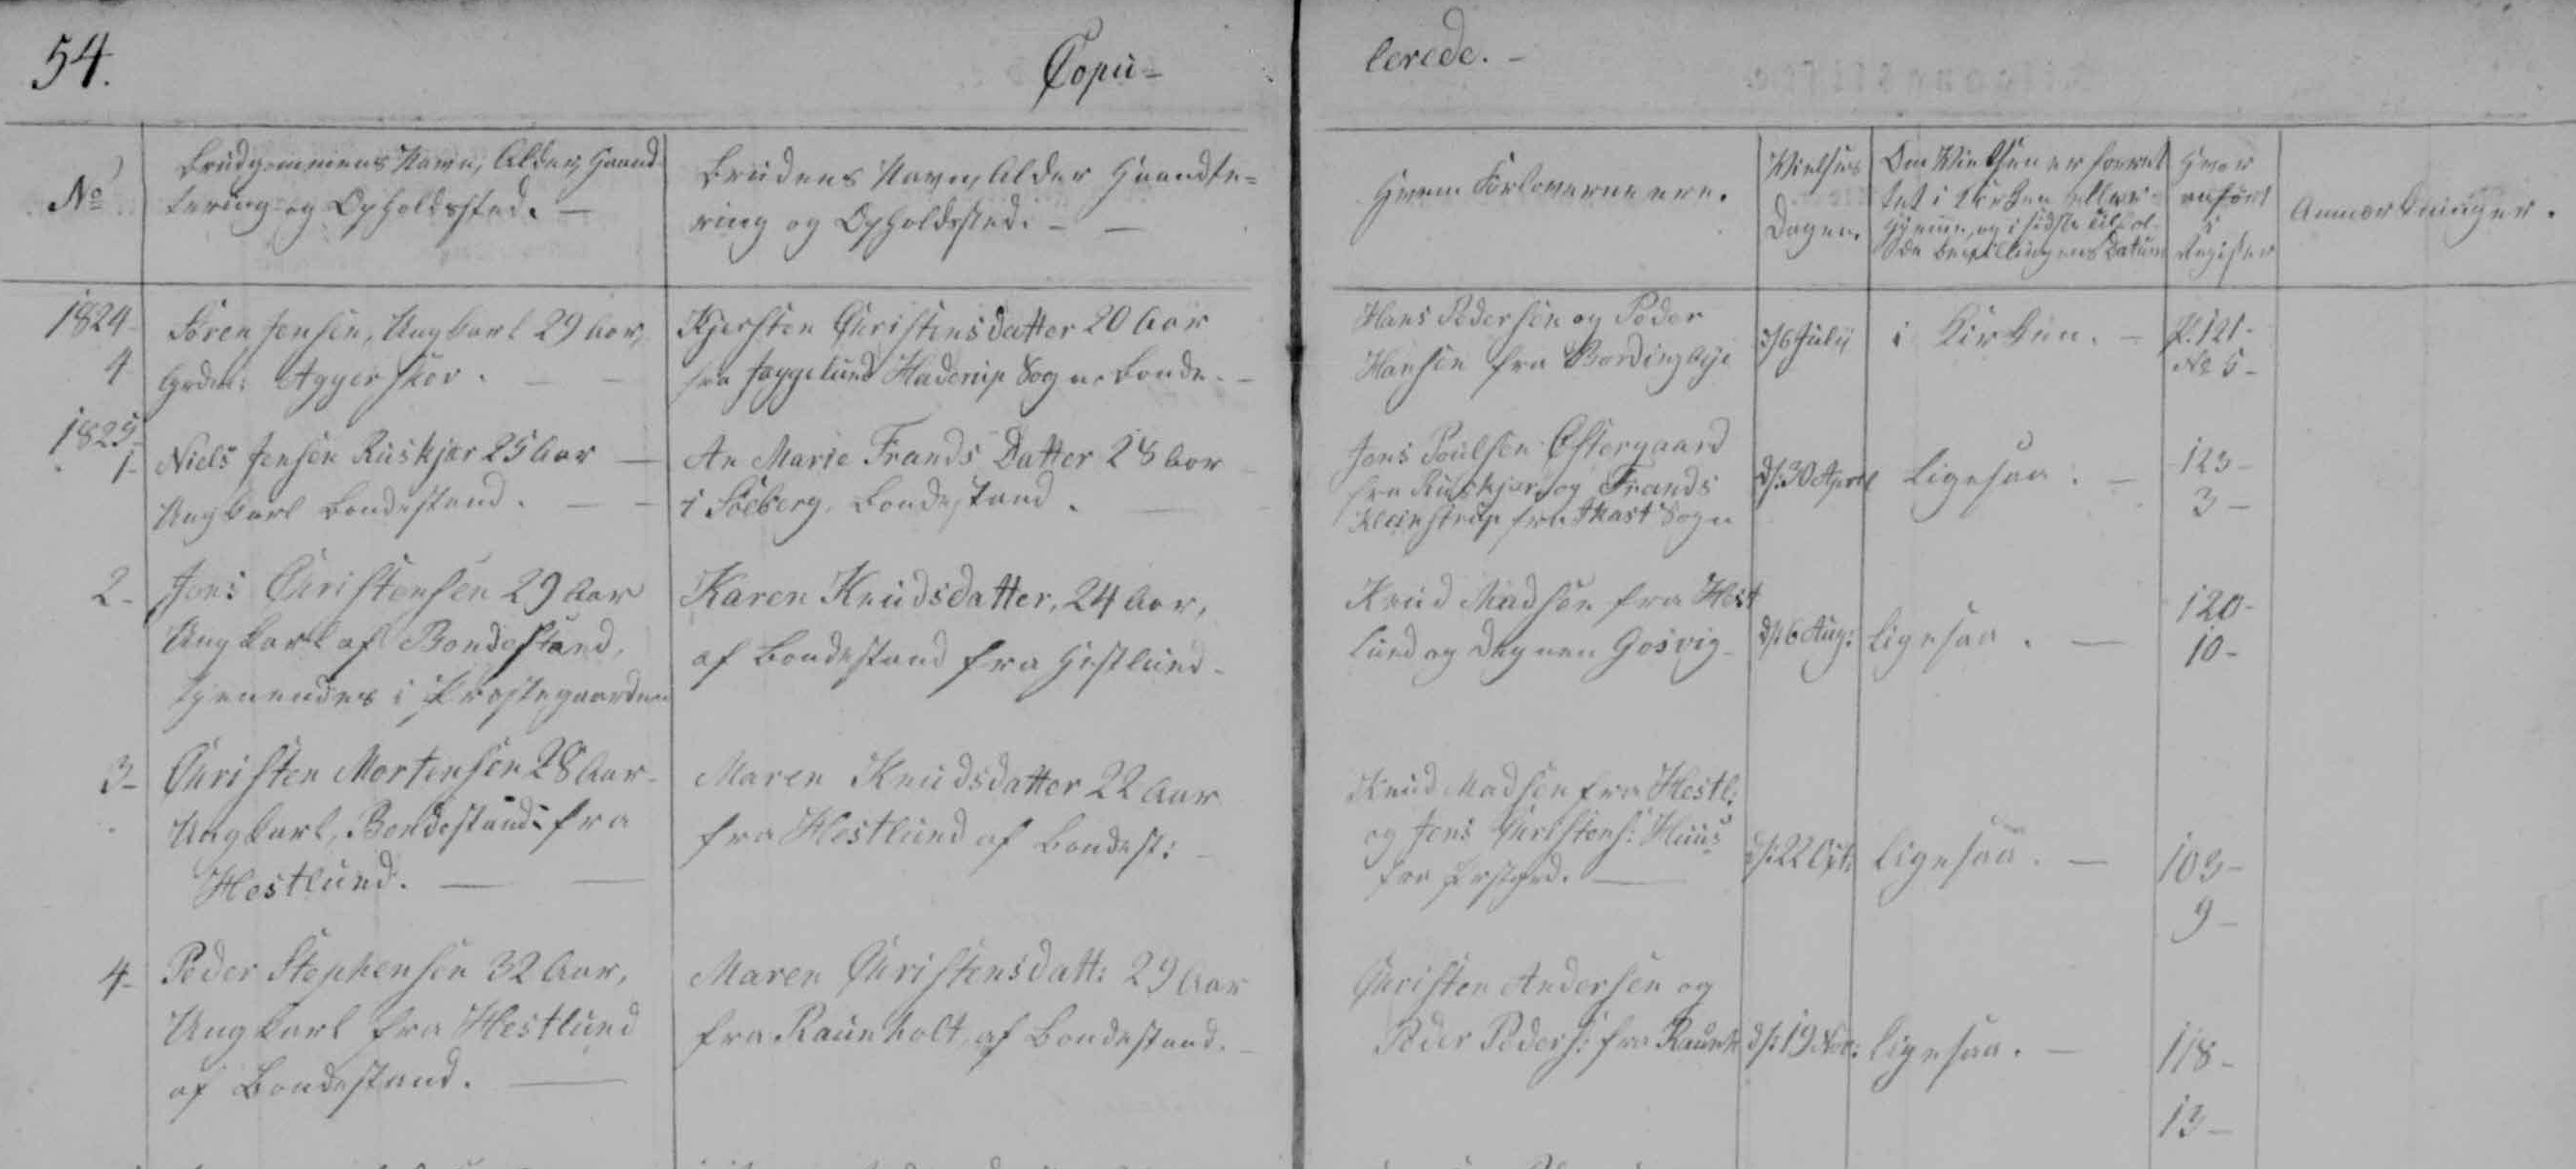 54.
Copu=
lerede. -
No
Brudgommens Navn, Alder, Haand
tering og Opholdssted. -
Brudens Navn, Alder Haandte=
ring og Opholdssted. - -
Hvem Forloverne ere.
Vielses
Dagen.
Om Vielsen er forret
tet i Kirken eller
Hjemme, og i sidste Tilfæl-
de Bevillingens Datum
Hvor
anført
i
Register
Anmærkninger.
1824
4
Søren Jensen, Ungkarl 29 Aar,
Grdm: Aggerskov. - -
Kjersten Christensdatter 20 Aar
fra Haderup Sogn, Bonde. -
Hans Pedersen og Peder
Hansen fra Bording Bye
July
i Kirken. -
p. 121-
No 5-
1825
1-
Niels Jensen Ruskjær 25 Aar -
Ungkarl Bondestand. - -
An Marie Frands Datter 28 Aar
i Søeberg, Bondestand.
Jens Poulsen Østergaard
fra Ruskjær, og Frands
fra Ikast Sogn
d: 30 April
ligesaa. -
123-
3-
2-
Jens Christensen 29 Aar
Ungkarl af Bondestand,
tjenendes i Præstegaarden
Karen Knudsdatter, 24 Aar,
af Bondestand fra Hestlund-
Knud Madsen fra Hest
lund og Degnen Gosvig-
Aug:
ligesaa. -
120-
10-
3-
Christen Mortensen 28 Aar-
Ungkarl, Bondestand: fra
Hestlund. - -
Maren Knudsdatter 22 Aar
fra Hestlund af Bondest: -
Knud Madsen fra Hestl:
og Jens Christens: Huus
fra Præstgrd. -
d: 22
ligesaa. -
103-
9-
4-
Peder Stephensen 32 Aar,
Ungkarl fra Hestlund
af Bondestand. -
Maren Christensdatt: 29 Aar
fra Raunholt, af Bondestand. -
Christen Andersen og
Peder Peders: fra Raunh
d: 19 Nov:
ligesaa. -
118-
13-